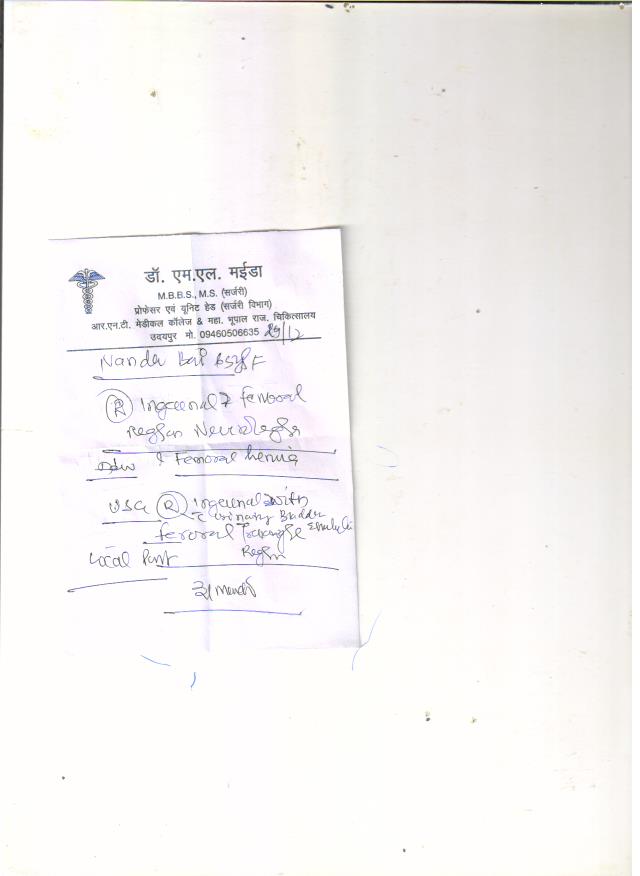 डॉ. एम.एल. मईडा
M.B.B.S., M.S. (सर्जरी)
प्रोफेसर एवं यूनिट हेड (सर्जरी विभाग)
आर.एन.टी. मेडीकल कॉलेज & महा. भूपाल राज. चिकित्सालय
उदयपुर मो. 09460506635 29/12
Nanda Bai 65y/F
(R) Inguenal & femoral
Region
& Femoral hernia
USG (R) Inguenal with
c urinary Bladder
femoral Triangle
Local Part Region